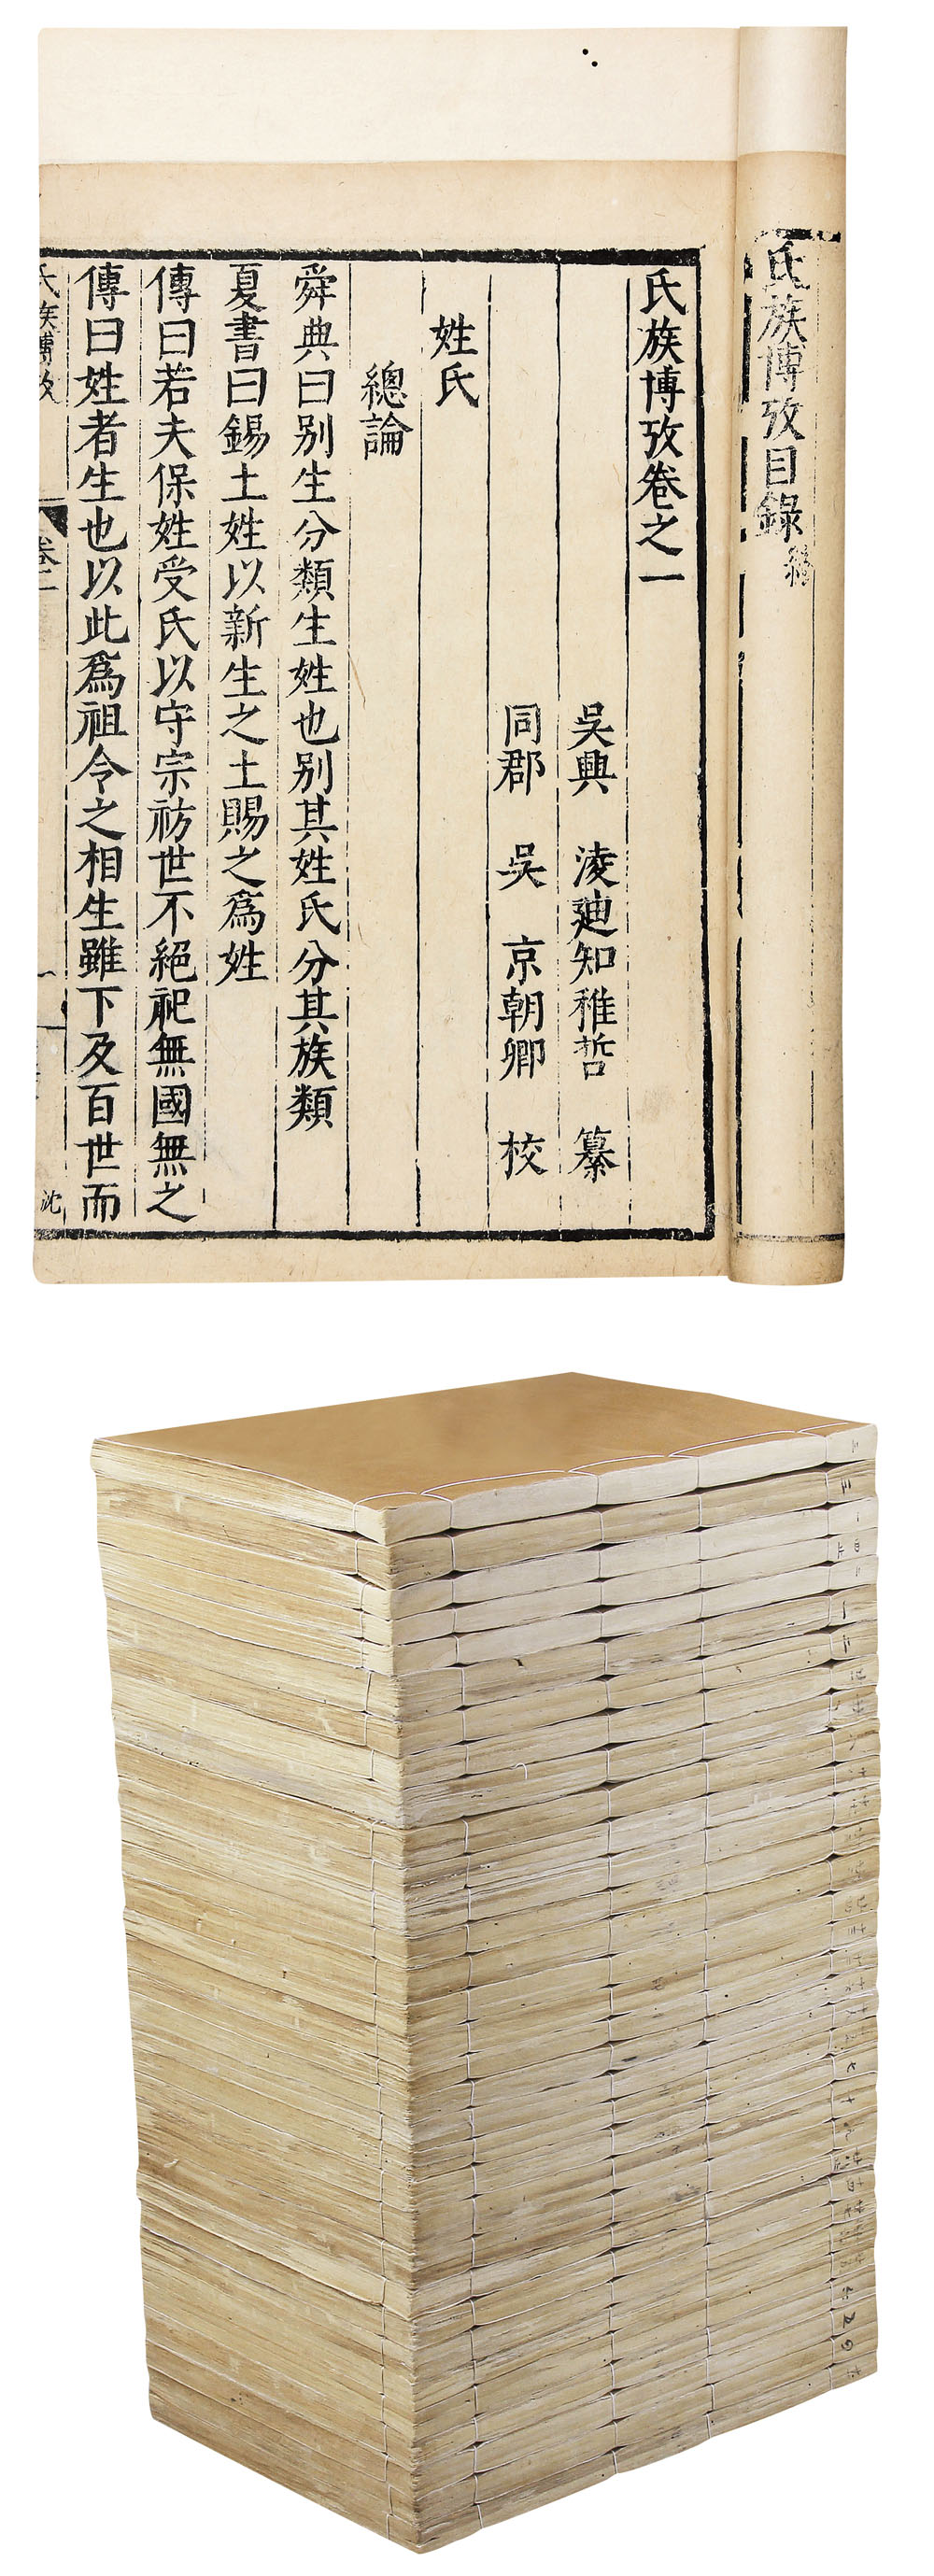 氏族博攷目錄終
氏族博攷卷之一
吳興 淩廸知稚哲 纂
同郡 吳 京朝卿 校
姓氏
總論
舜典曰別生分類生姓也別其姓氏分其族類
夏書曰錫土姓以新生之土賜之爲姓
傳曰若夫保姓受氏以守宗祊世不絕祀無國無之
傳曰姓者生也以此爲祖令之相生雖下及百世而
氏族博攷
卷一
一
沈